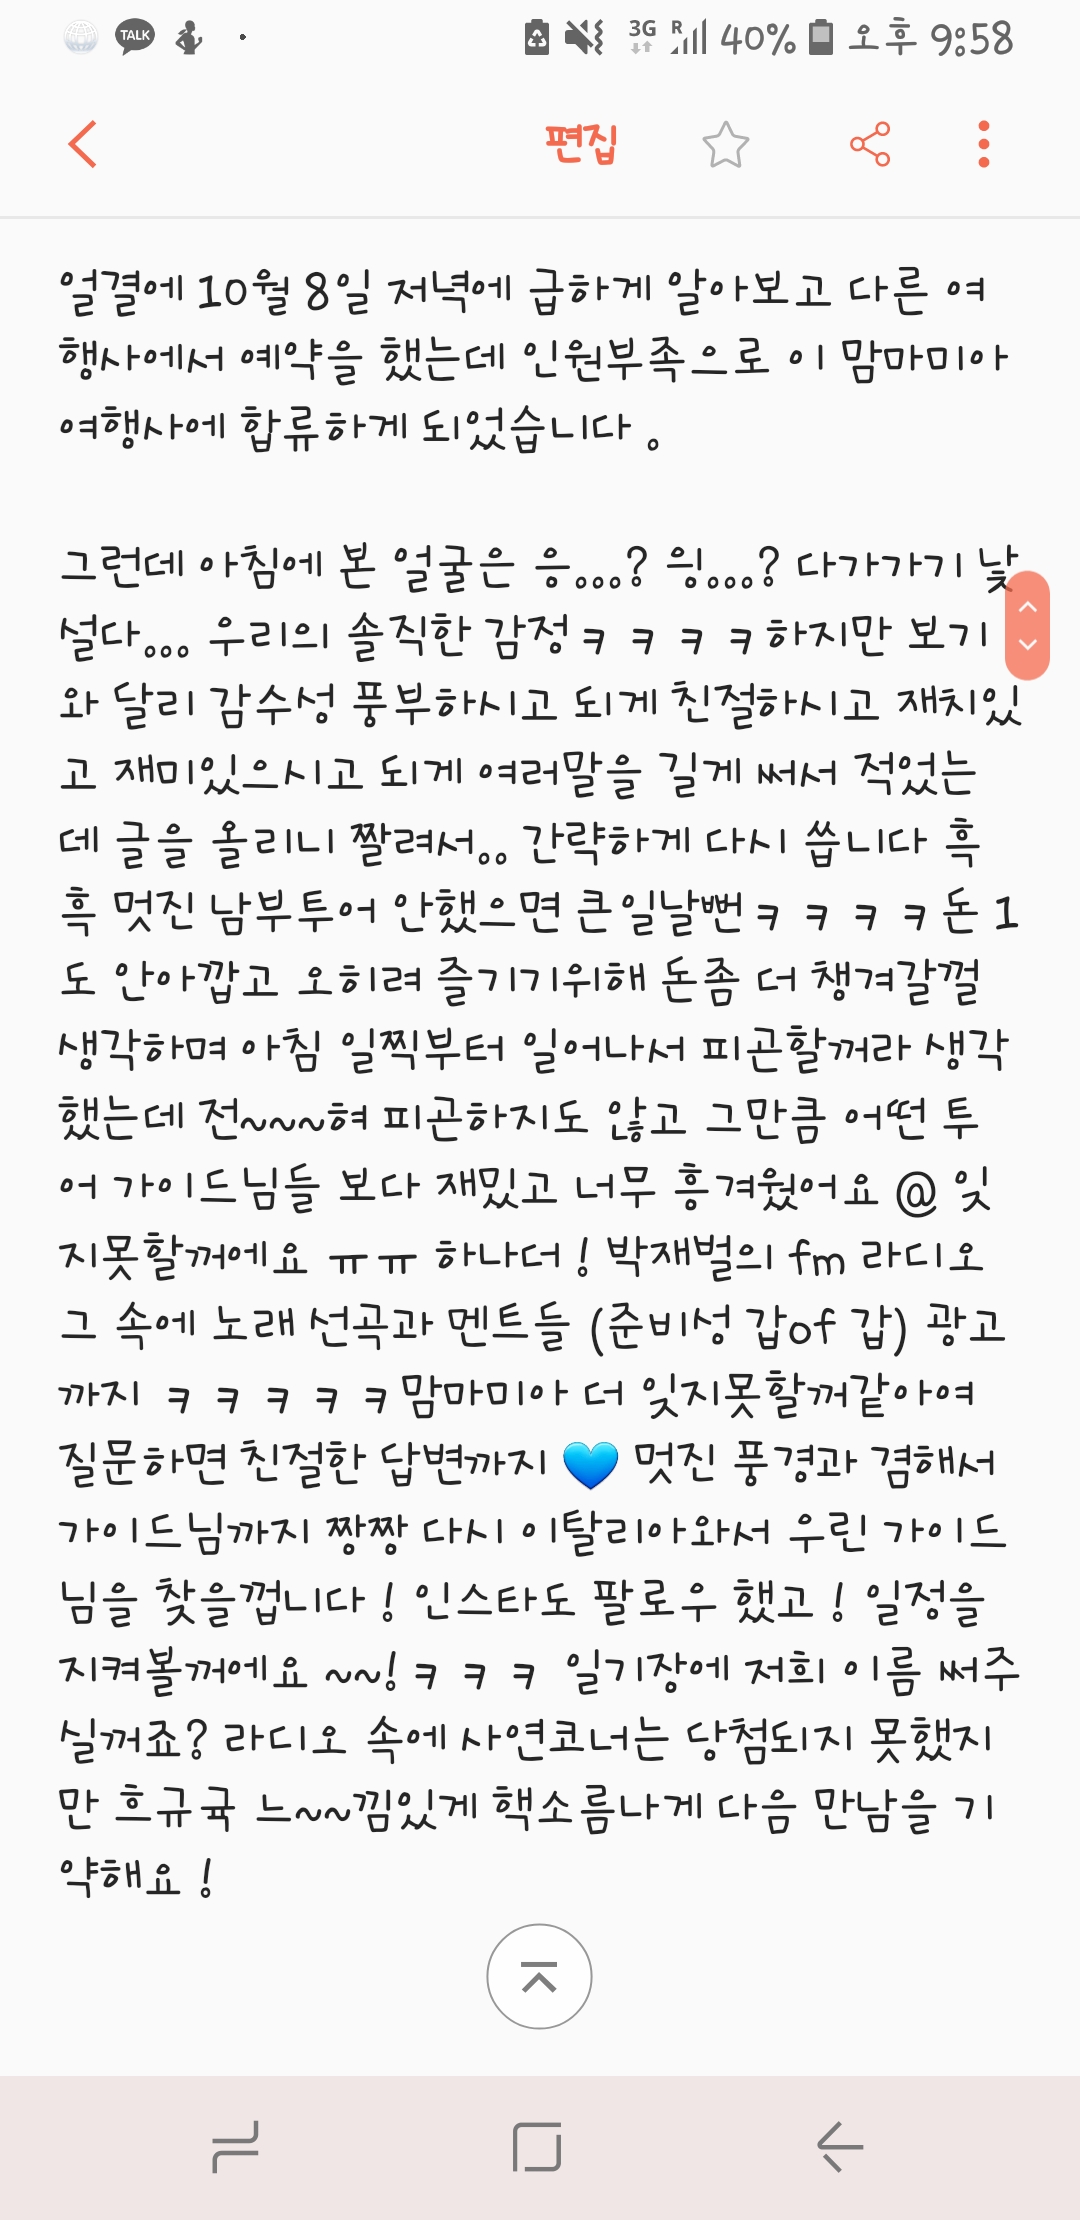 TALK 3G R 40% 오후 9:58
편집
얼결에 10월 8일 저녁에 급하게 알아보고 다른 여
행사에서 예약을 했는데 인원부족으로 이 맘마미아
여행사에 합류하게 되었습니다 。
그런데 아침에 본 얼굴은 응...? 읭...? 다가가기 낯
설다... 우리의 솔직한 감정ㅋㅋㅋㅋ하지만 보기
와 달리 감수성 풍부하시고 되게 친절하시고 재치있
고 재미있으시고 되게 여러말을 길게 써서 적었는
데 글을 올리니 짤려서.. 간략하게 다시 씁니다 흑
흑 멋진 남부투어 안했으면 큰일날뻔ㅋㅋㅋㅋ돈 1
도 안아깝고 오히려 즐기기위해 돈좀 더 챙겨갈껄
생각하며 아침 일찍부터 일어나서 피곤할꺼라 생각
했는데 전~~~혀 피곤하지도 않고 그만큼 어떤 투
어 가이드님들 보다 재밌고 너무 흥겨웠어요 @ 잊
지못할꺼에요 ㅠㅠ 하나더 ! 박재벌의 fm 라디오
그 속에 노래 선곡과 멘트들 (준비성 갑of 갑) 광고
까지 ㅋㅋㅋㅋㅋ맘마미아 더 잊지못할꺼같아여
질문하면 친절한 답변까지 💙 멋진 풍경과 겸해서
가이드님까지 짱짱 다시 이탈리아와서 우린 가이드
님을 찾을껍니다 ! 인스타도 팔로우 했고 ! 일정을
지켜볼꺼에요 ~~! ㅋㅋㅋ 일기장에 저희 이름 써주
실꺼죠? 라디오 속에 사연코너는 당첨되지 못했지
만 흐규규 느~~낌있게 핵소름나게 다음 만남을 기
약해요 !